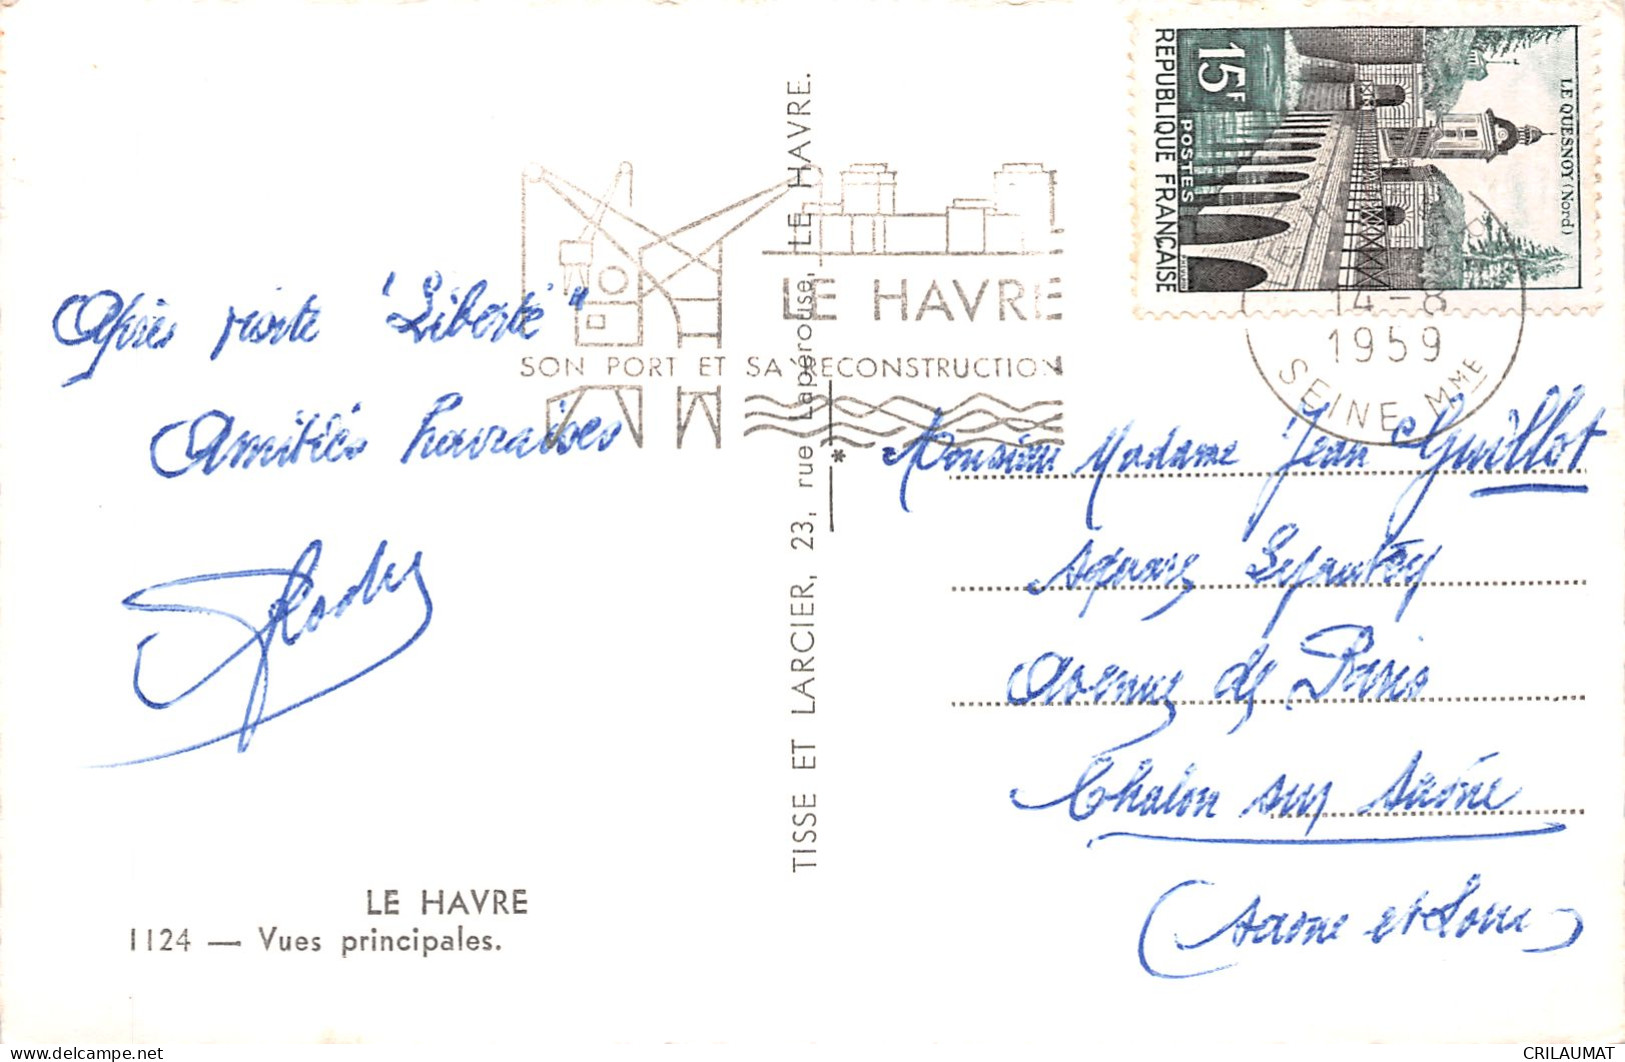 Après visite "Liberté"
Amitiés havraises
LE HAVRE
1124 — Vues principales.
TISSE ET LARCIER, 23, rue Lapérouse, LE HAVRE.
LE HAVRE
SON PORT ET SA RECONSTRUCTION
REPUBLIQUE FRANÇAISE
15F
POSTES
LE QUESNOY (Nord)
14-8
1959
SEINE MME
Monsieur Madame Jean Guillot
square
Avenue de Paris
Chalon sur Saône
(Saone et Loire)
delcampe.net
CRILAUMAT